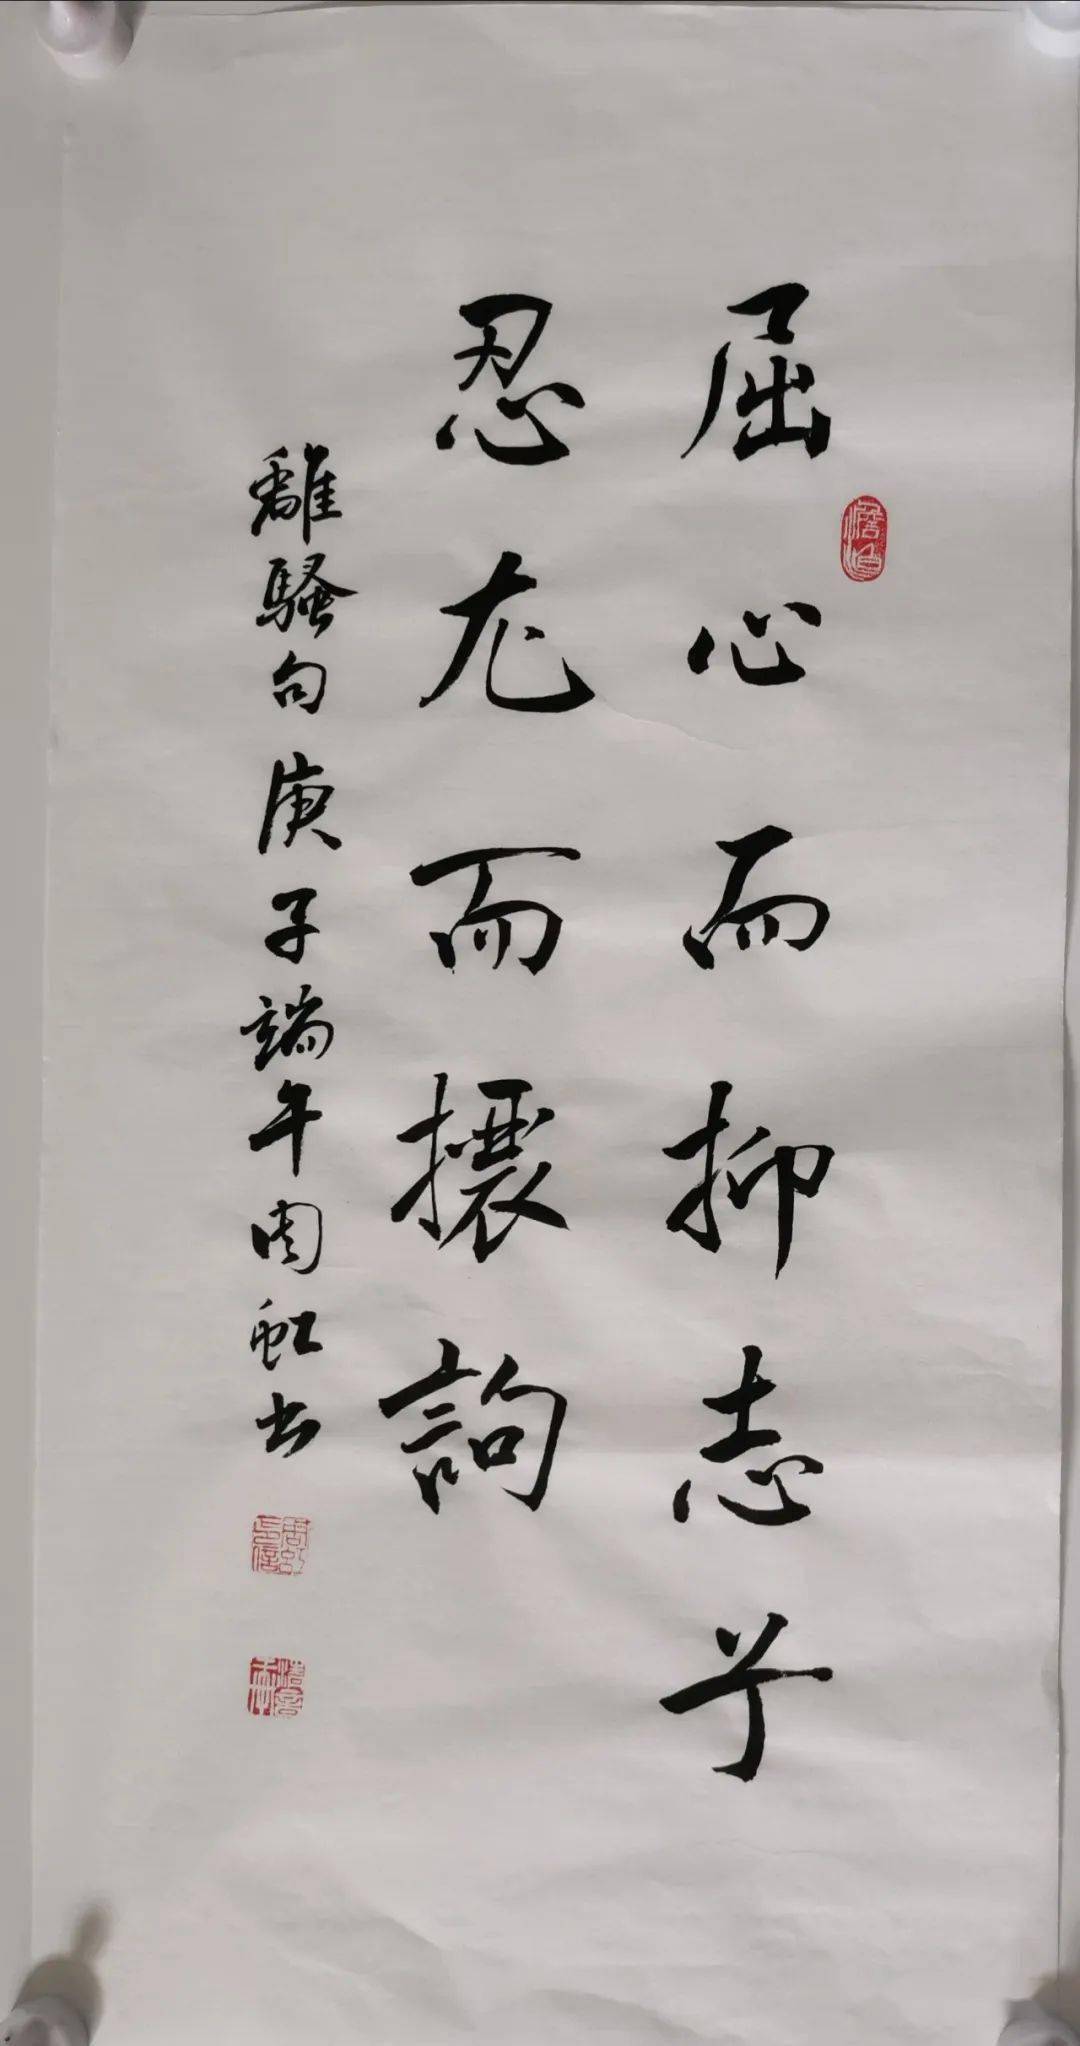 屈心而抑志兮
忍尤而攘詬
離騷句庚子端午周虹書